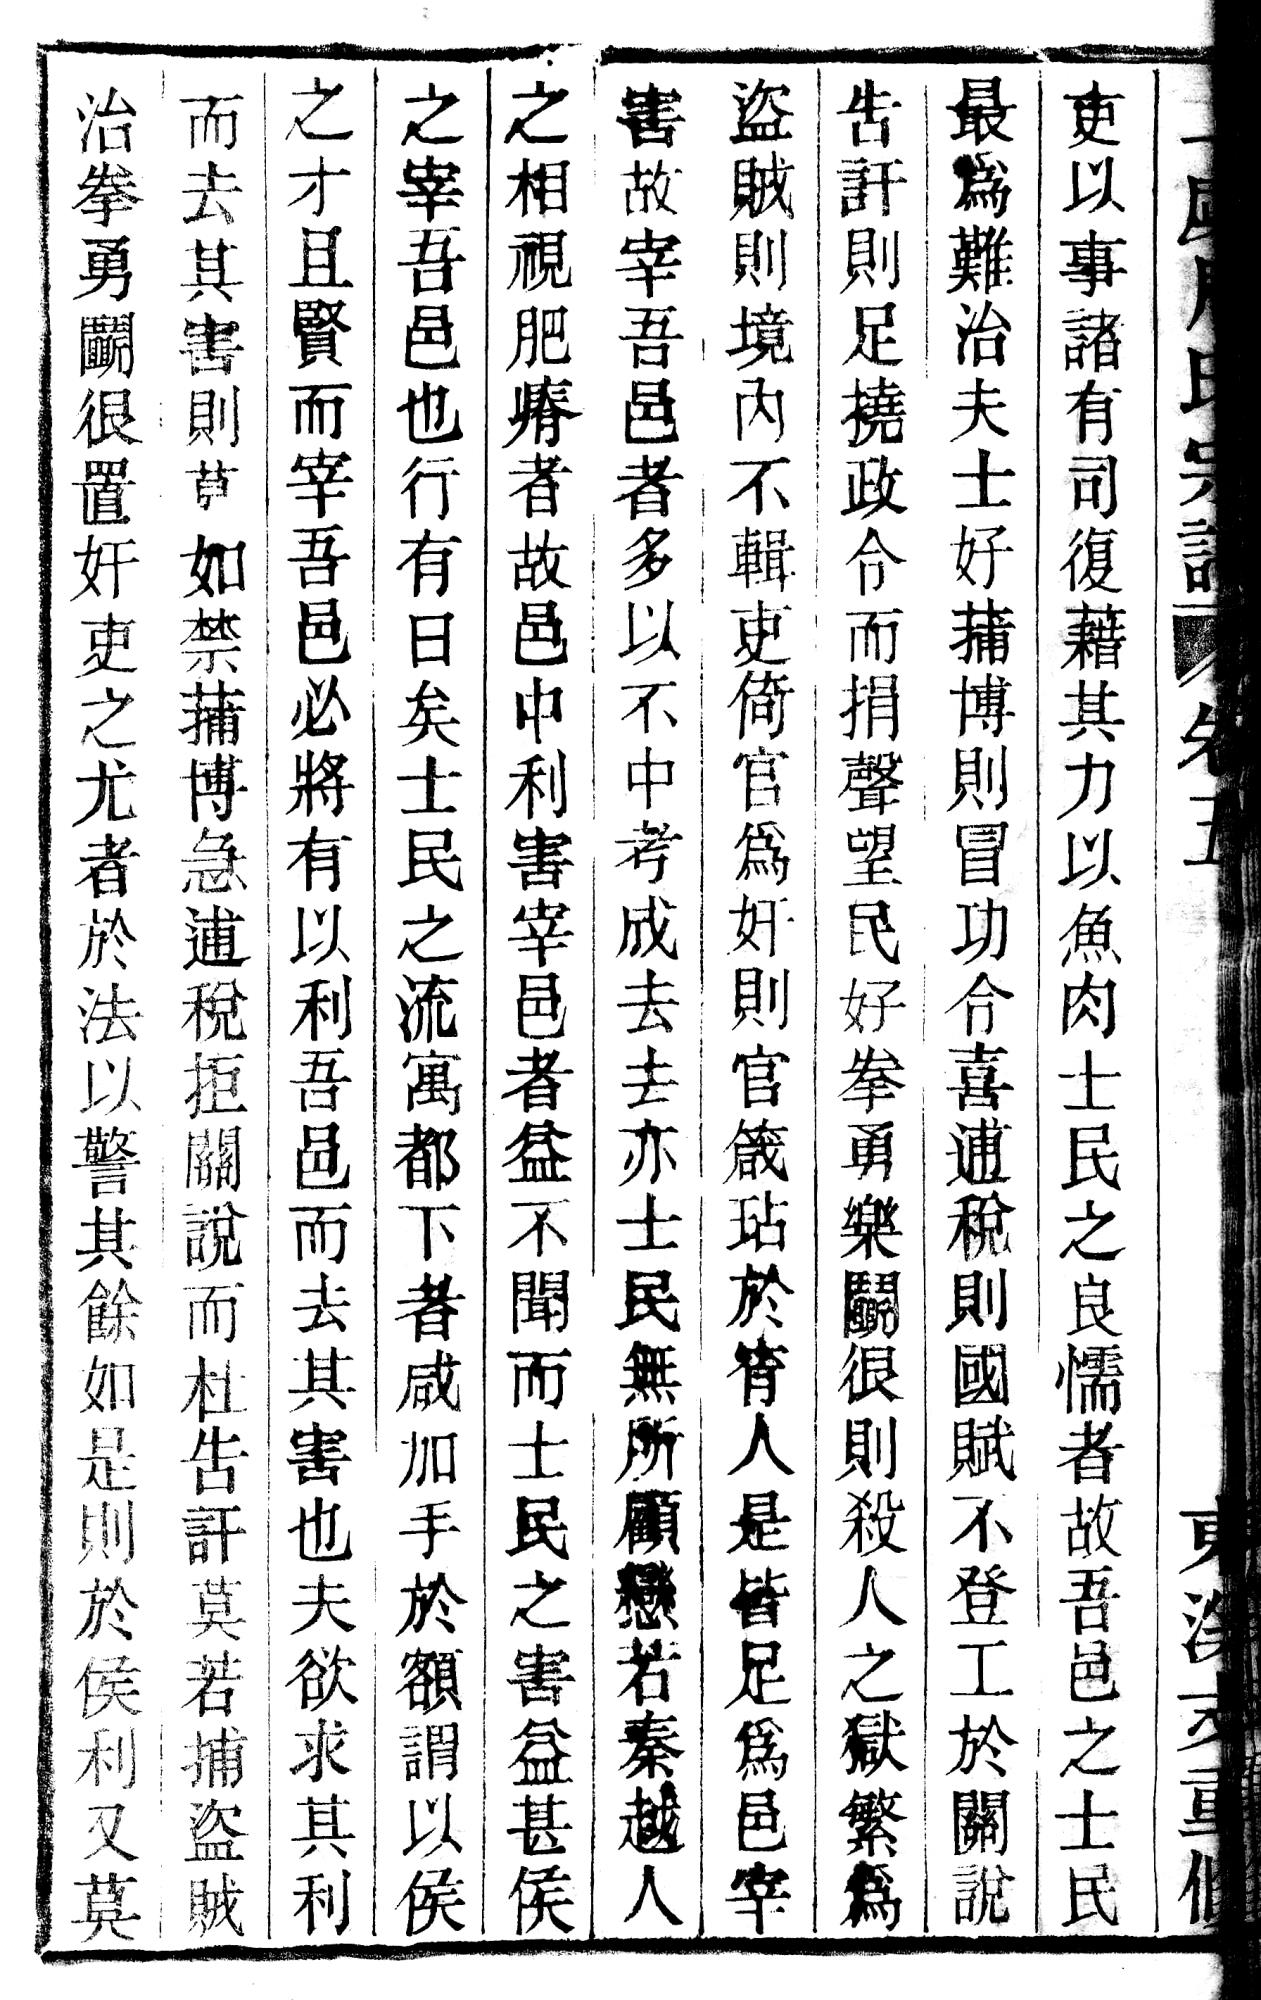 周氏宗譜 卷五
吏以事諸有司復藉其力以魚肉士民之良懦者故吾邑之士民
最爲難治夫士好蒱博則冒功令喜逋稅則國賦不登工於關說
告訐則足撓政令而捐聲望民好拳勇樂鬭很則殺人之獄繁爲
盜賊則境內不輯吏倚官爲奸則官箴玷於宵人是皆足爲邑宰
害故宰吾邑者多以不中考成去去亦士民無所顧戀若秦越人
之相視肥瘠者故邑中利害宰邑者益不聞而士民之害益甚侯
之宰吾邑也行有日矣士民之流寓都下者咸加手於額謂以侯
之才且賢而宰吾邑必將有以利吾邑而去其害也夫欲求其利
而去其害則莫如禁蒱博急逋稅拒關說而杜告訐莫若捕盜賊
治拳勇鬭很置奸吏之尤者於法以警其餘如是則於侯利又莫